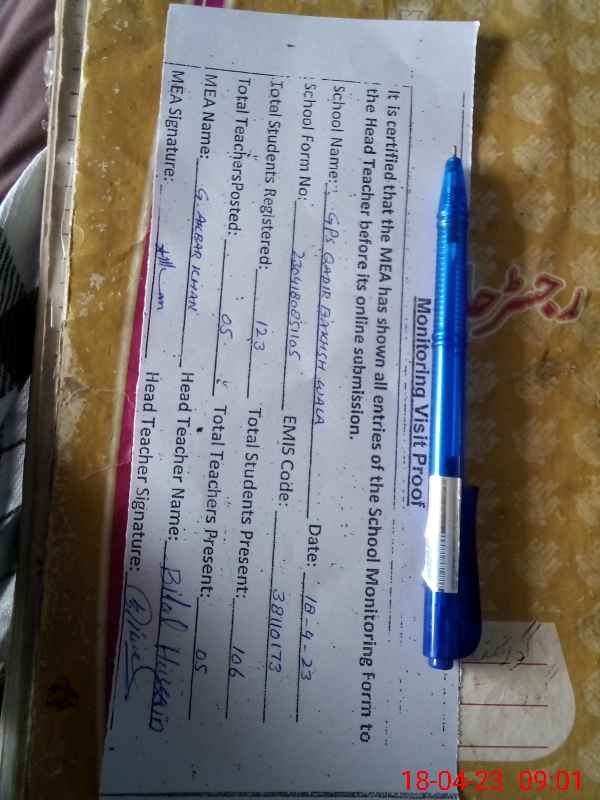 Monitoring Visit Proof
It is certified that the MEA has shown all entries of the School Monitoring Form to
the Head Teacher before its online submission.
School Name: GPS QADIR BAKHSH WALA Date: 18-4-23
School Form No: EMIS Code: 38110173
Total Students Registered: 123 Total Students Present: 106
Total TeachersPosted: 05 Total Teachers Present: 05
MEA Name: G. AKBAR KHAN Head Teacher Name: Bilal Hussain
MEA Signature: Head Teacher Signature:
رجسٹر
18-04-23 09:01